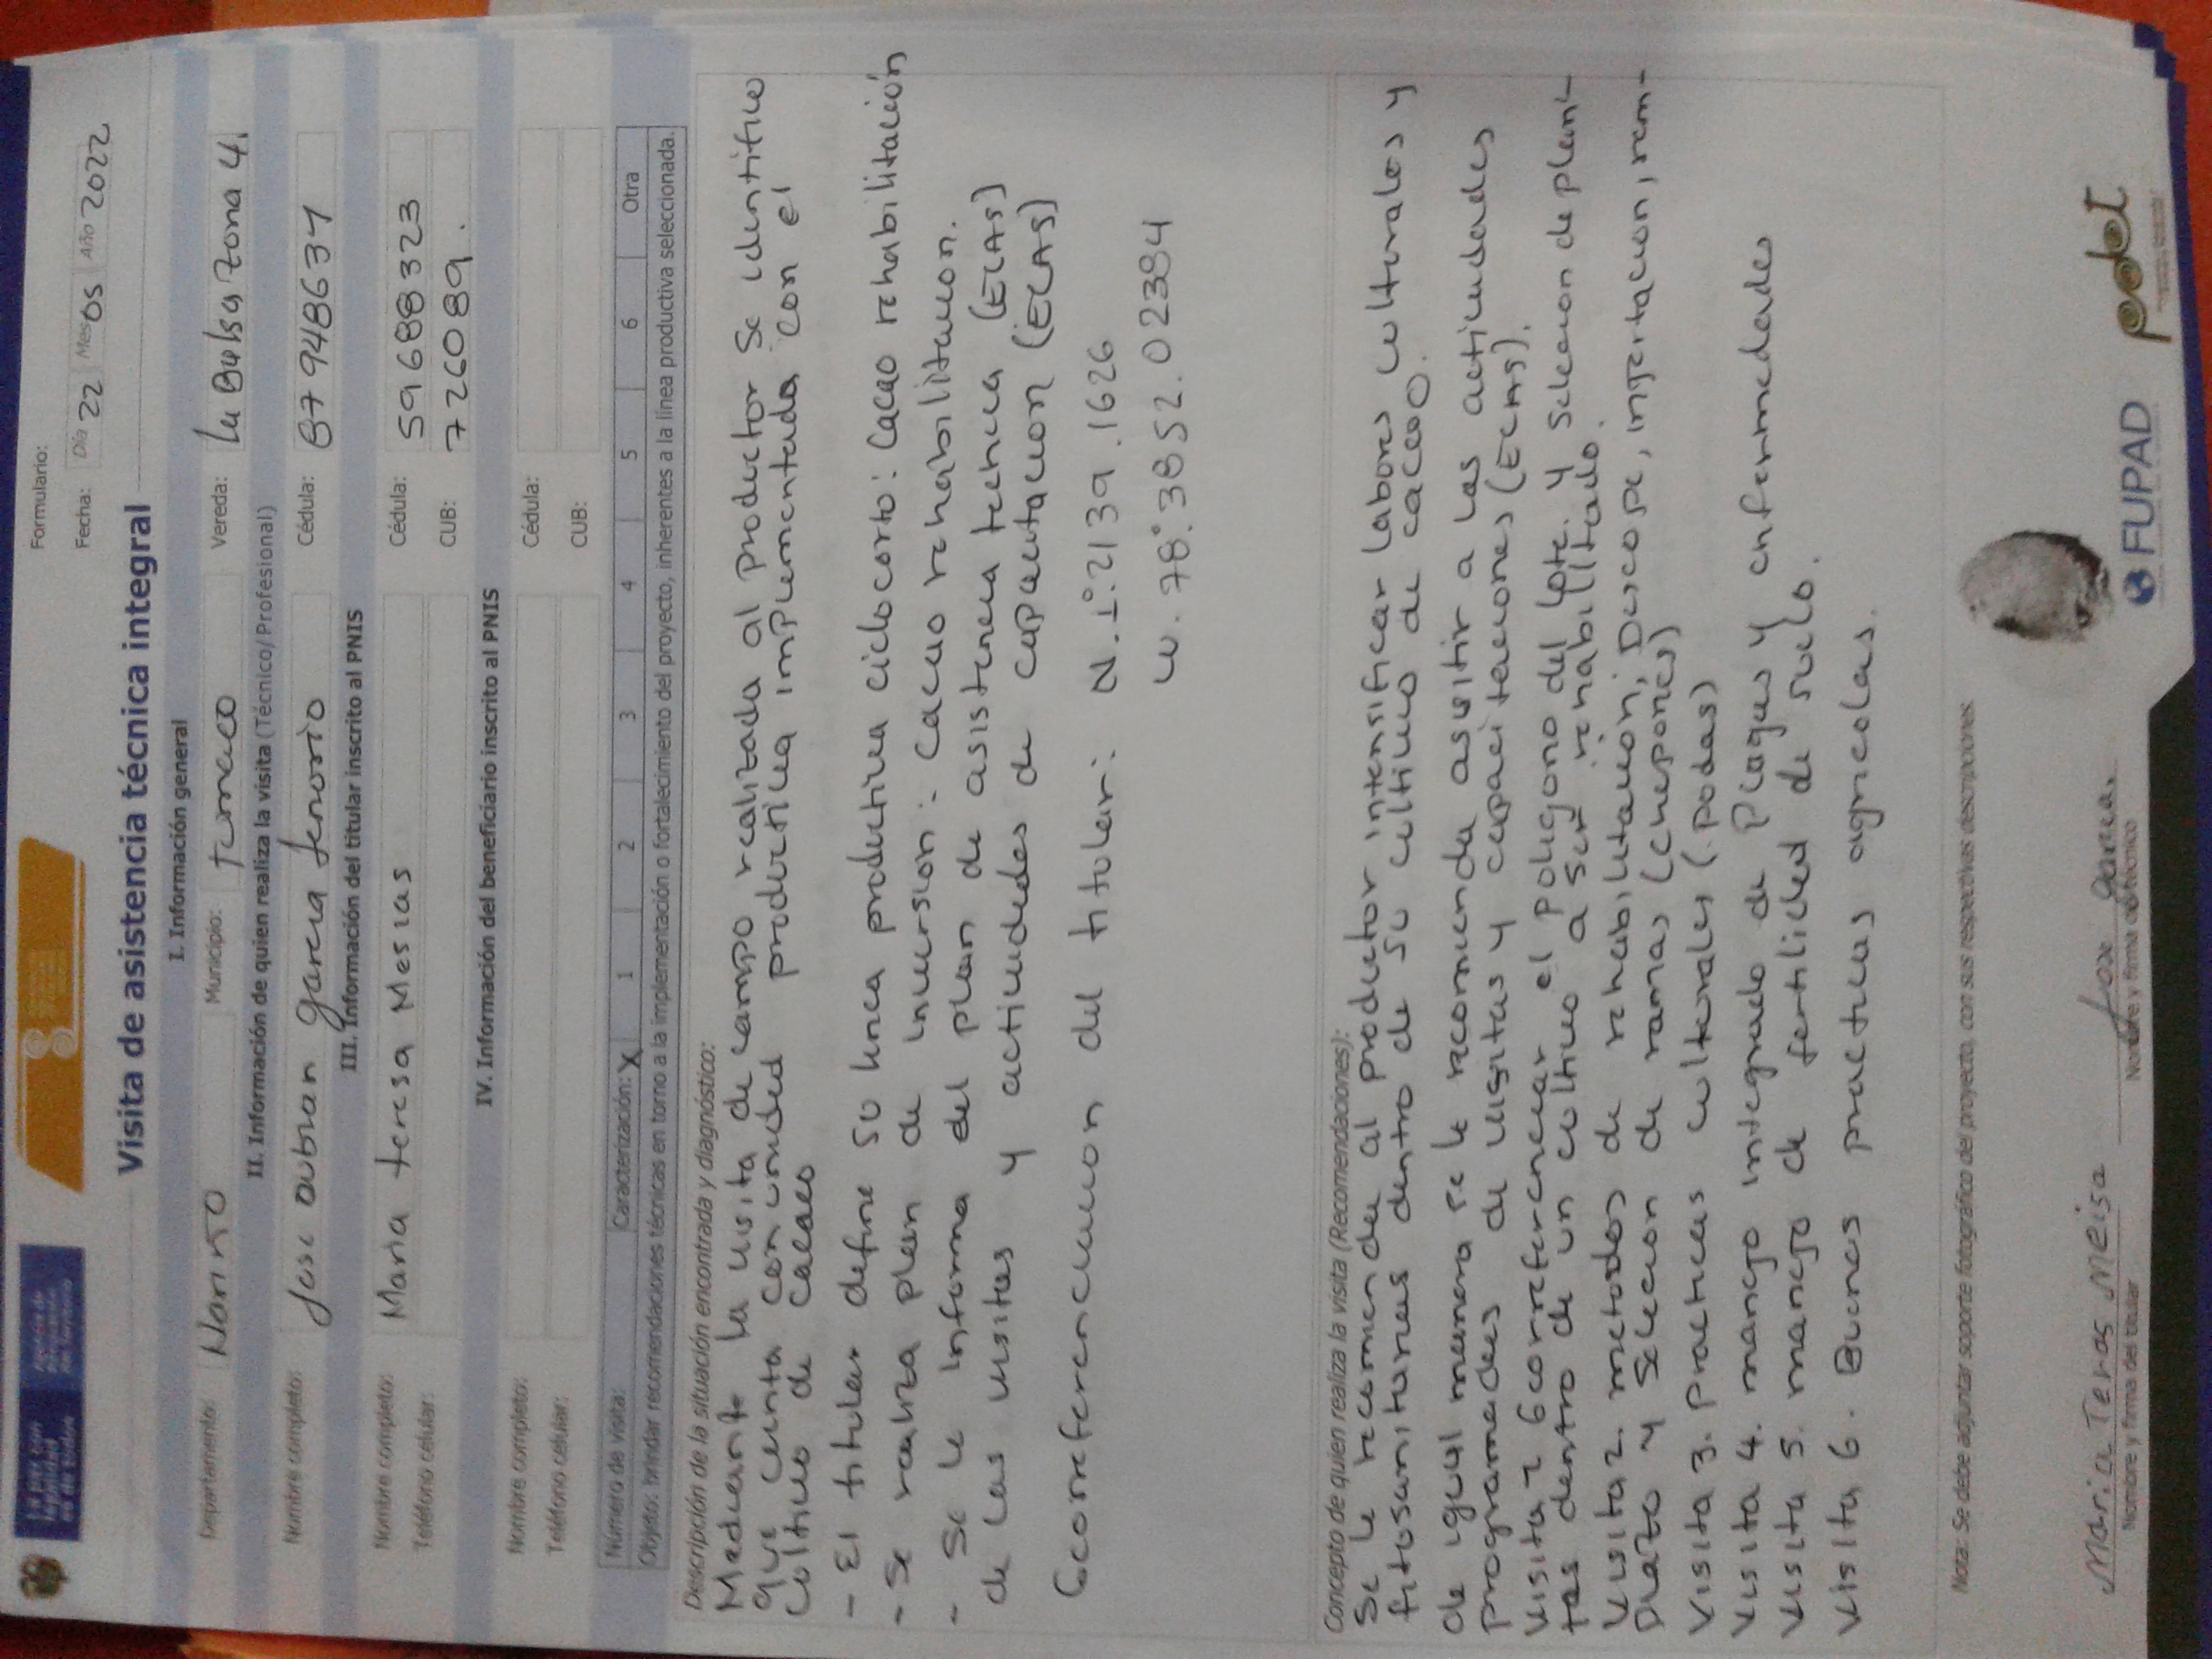 Formulario:
Fecha: Día 22 Mes 05 Año 2022
Visita de asistencia técnica integral
I. Información general
Departamento: Nariño Municipio: Tumaco Vereda: La Balsa Zona 4.
II. Información de quien realiza la visita (Técnico/ Profesional)
Nombre completo: Jose aubran garcia tenorio Cédula: 87948634
III. Información del titular inscrito al PNIS
Nombre completo: Maria teresa Mesias Cédula: 59688323
Teléfono celular: CUB: 726089.
IV. Información del beneficiario inscrito al PNIS
Nombre completo: Cédula:
Teléfono celular: CUB:
Número de visita: Caracterización: X 1 2 3 4 5 6 Otra
Objeto: brindar recomendaciones técnicas en torno a la implementación o fortalecimiento del proyecto, inherentes a la línea productiva seleccionada.
Descripción de la situación encontrada y diagnóstico:
Mediante la visita de campo realizada al productor Se identifico
que cuenta con unidad productiva implementada con el
Cultivo de Cacao
- El titular define su linea productiva ciclo corto: Cacao rehabilitación
- Se realiza plan de inversion: Cacao rehabilitacion.
- Se le informa del plan de asistencia tecnica (ECAS)
de las visitas y actividades de capacitacion (ECAS)
Georeferenciacion del titular: N. 1°: 2139.1626
W. 78°: 3852.02384
Concepto de quien realiza la visita (Recomendaciones):
Se le recomienda al productor intensificar labores culturales y
fitosanitarias dentro de su cultivo de cacao.
de igual manera se le recomienda asistir a las actividades
programadas de visitas y capacitaciones (ECAS).
Visita 1 Georeferenciar el poligono del lote. y Seleccion de plani-
tas dentro de un cultivo a ser rehabilitado.
Visita 2. metodos de rehabilitacion; Descope, injertacion, ram-
plazo y Seleccion de ramas (chupones)
Visita 3. practicas culturales (podas)
Visita 4. manejo integrado de Plagas y enfermedades
Visita 5. manejo de fertilidad de suelo.
Visita 6. Buenas practicas agricolas.
Nota: Se debe adjuntar soporte fotográfico del proyecto, con sus respectivas descripciones.
Maria Teras Meisa Jose Garcia.
Nombre y firma del titular Nombre y firma del técnico
FUPAD pdet